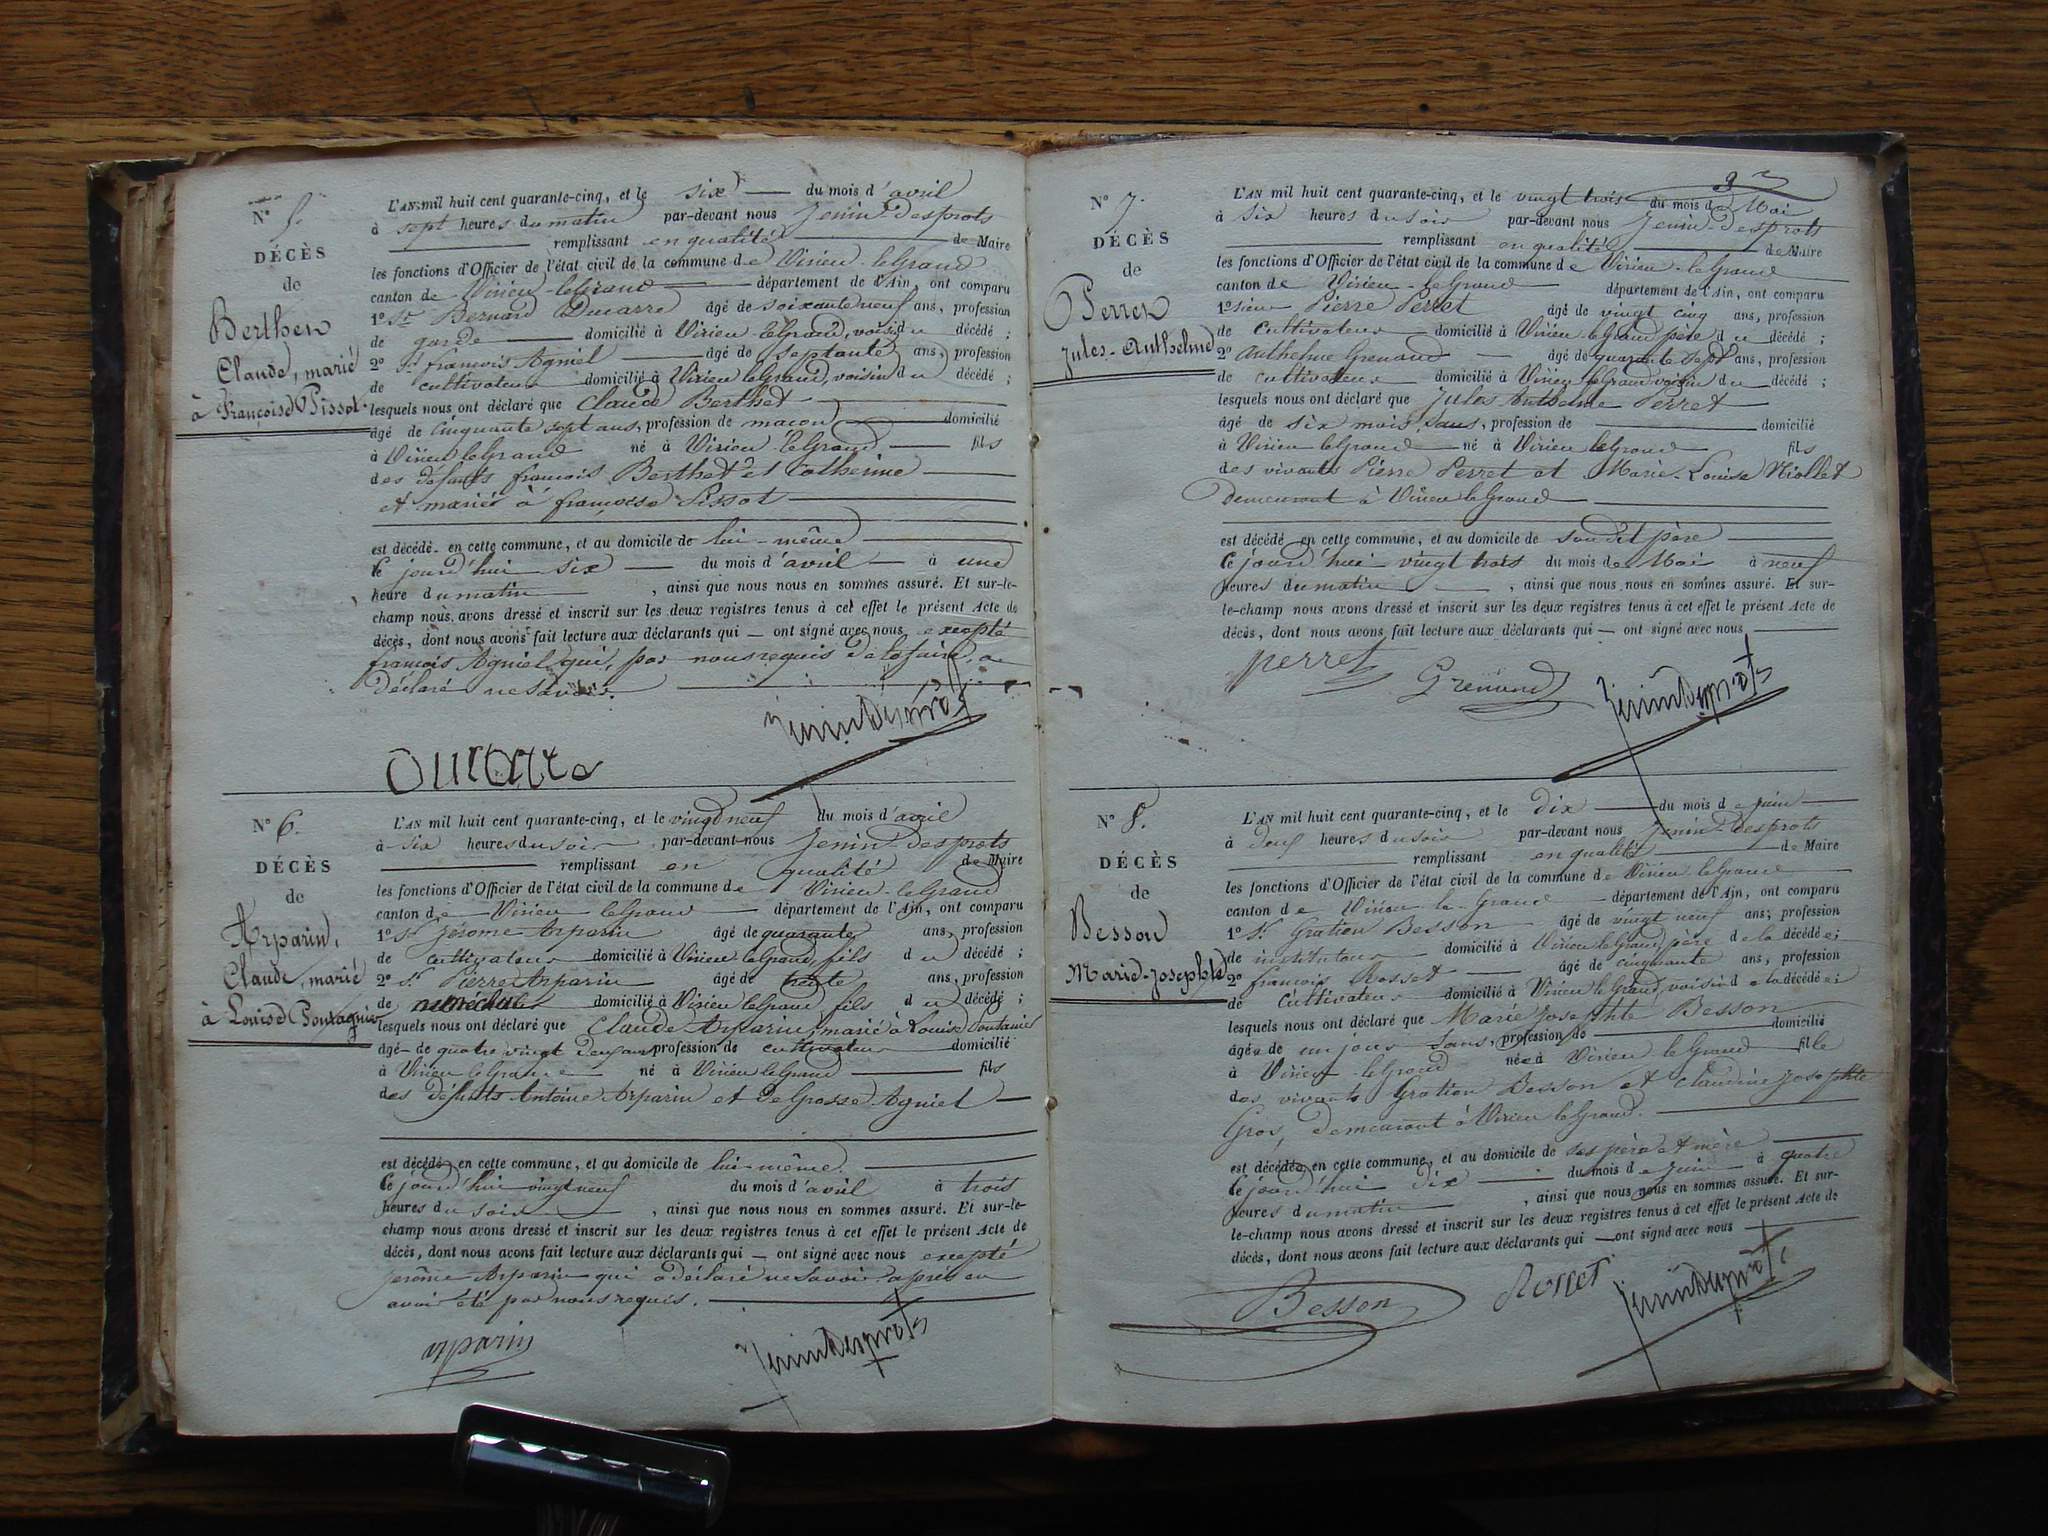 N° 5.
DÉCÈS
de
Berthet
Claude, marié
à Françoise Pissot.
L'AN mil huit cent quarante-cinq, et le six du mois d'avril
à sept heures du matin par-devant nous Jenin-Desprots
remplissant en qualité de Maire
les fonctions d'Officier de l'état civil de la commune de Virieu-le-Grand
canton de Virieu-le-Grand département de l'Ain, ont comparu
1° Sr Bernard Ducarre âgé de soixante neuf ans, profession
de garde domicilié à Virieu le Grand, voisin du décédé ;
2° Sr françois Agniel âgé de septante ans, profession
de cultivateur domicilié à Virieu le Grand, voisin du décédé ;
lesquels nous ont déclaré que Claude Berthet
âgé de cinquante sept ans, profession de maçon domicilié
à Virieu le Grand né à Virieu le Grand fils
des défunts françois Berthet et Catherine
et marié à françoise Pissot
est décédé en cette commune, et au domicile de lui-même
le jourd'hui six du mois d'avril à une
heure du matin , ainsi que nous nous en sommes assuré. Et sur-le-
champ nous avons dressé et inscrit sur les deux registres tenus à cet effet le présent Acte de
décès, dont nous avons fait lecture aux déclarants qui ont signé avec nous excepté
françois Agniel qui, par nous requis de le faire, a
déclaré ne savoir.
Jenin Desprots
N° 6.
DÉCÈS
de
Arparin,
Claude, marié
à Louise Pontagnier
L'AN mil huit cent quarante-cinq, et le vingt neuf du mois d'avril
à six heures du soir par-devant nous Jenin-Desprots
remplissant en qualité de Maire
les fonctions d'Officier de l'état civil de la commune de Virieu-le-Grand
canton de Virieu le Grand département de l'Ain, ont comparu
1° Sr Jérome Arparin âgé de quarante ans, profession
de cultivateur domicilié à Virieu le Grand, fils du décédé ;
2° Sr Pierre Arparin âgé de trente ans, profession
de maréchal domicilié à Virieu le Grand fils du décédé ;
lesquels nous ont déclaré que Claude Arparin, marié à Louise
âgé de quatre vingt deux ans profession de cultivateur domicilié
à Virieu le Grand né à Virieu le Grand fils
des défunts Antoine Arparin et de Agniel
est décédé en cette commune, et au domicile de lui-même.
le jourd'hui vingt neuf du mois d'avril à trois
heures du soir , ainsi que nous nous en sommes assuré. Et sur-le-
champ nous avons dressé et inscrit sur les deux registres tenus à cet effet le présent Acte de
décès, dont nous avons fait lecture aux déclarants qui ont signé avec nous excepté
Jérôme Arparin qui a déclaré ne savoir après en
avoir été par nous requis.
arparin Jenin Desprots
N° 7.
DÉCÈS
de
Perret
Jules-Anthelme
L'AN mil huit cent quarante-cinq, et le vingt trois du mois de Mai
à six heures du soir par-devant nous Jenin-Desprots
remplissant en qualité de Maire
les fonctions d'Officier de l'état civil de la commune de Virieu-le-Grand
canton de Virieu-le-Grand département de l'Ain, ont comparu
1° sieur Pierre Perret âgé de vingt cinq ans, profession
de cultivateur domicilié à Virieu le Grand père du décédé ;
2° Anthelme Grenand âgé de quarante sept ans, profession
de cultivateur domicilié à Virieu le Grand voisin du décédé ;
lesquels nous ont déclaré que Jules Anthelme Perret
âgé de six mois, sans, profession de domicilié
à Virieu le Grand né à Virieu le Grand fils
des vivants Pierre Perret et Marie-Louise
demeurant à Virieu le Grand
est décédé en cette commune, et au domicile de son dit père
le jourd'hui vingt trois du mois de Mai à neuf
heures du matin , ainsi que nous nous en sommes assuré. Et sur-
le-champ nous avons dressé et inscrit sur les deux registres tenus à cet effet le présent Acte de
décès, dont nous avons fait lecture aux déclarants qui ont signé avec nous
perret Grenand Jenin Desprots
N° 8.
DÉCÈS
de
Besson
Marie-Josephte
L'AN mil huit cent quarante-cinq, et le dix du mois de juin
à deux heures du soir par-devant nous Jenin-Desprots
remplissant en qualité de Maire
les fonctions d'Officier de l'état civil de la commune de Virieu-le-Grand
canton de Virieu-le-Grand département de l'Ain, ont comparu
1° Sr Gratien Besson âgé de vingt neuf ans, profession
de instituteur domicilié à Virieu le Grand, père de la décédée ;
2° françois Rosset âgé de cinquante ans, profession
de Cultivateur domicilié à Virieu le Grand, voisin de la décédée ;
lesquels nous ont déclaré que Marie Josephte Besson
âgée de un jour sans, profession de domicilié
à Virieu-le-Grand née à Virieu le Grand fille
des vivants Gratien Besson et Claudine Josephte
Gros, demeurant à Virieu le Grand.
est décédée en cette commune, et au domicile de ses père et mère
le jourd'hui dix du mois de Juin à quatre
heures du matin , ainsi que nous nous en sommes assuré. Et sur-
le-champ nous avons dressé et inscrit sur les deux registres tenus à cet effet le présent Acte de
décès, dont nous avons fait lecture aux déclarants qui ont signé avec nous
Besson Rosset Jenin Desprots